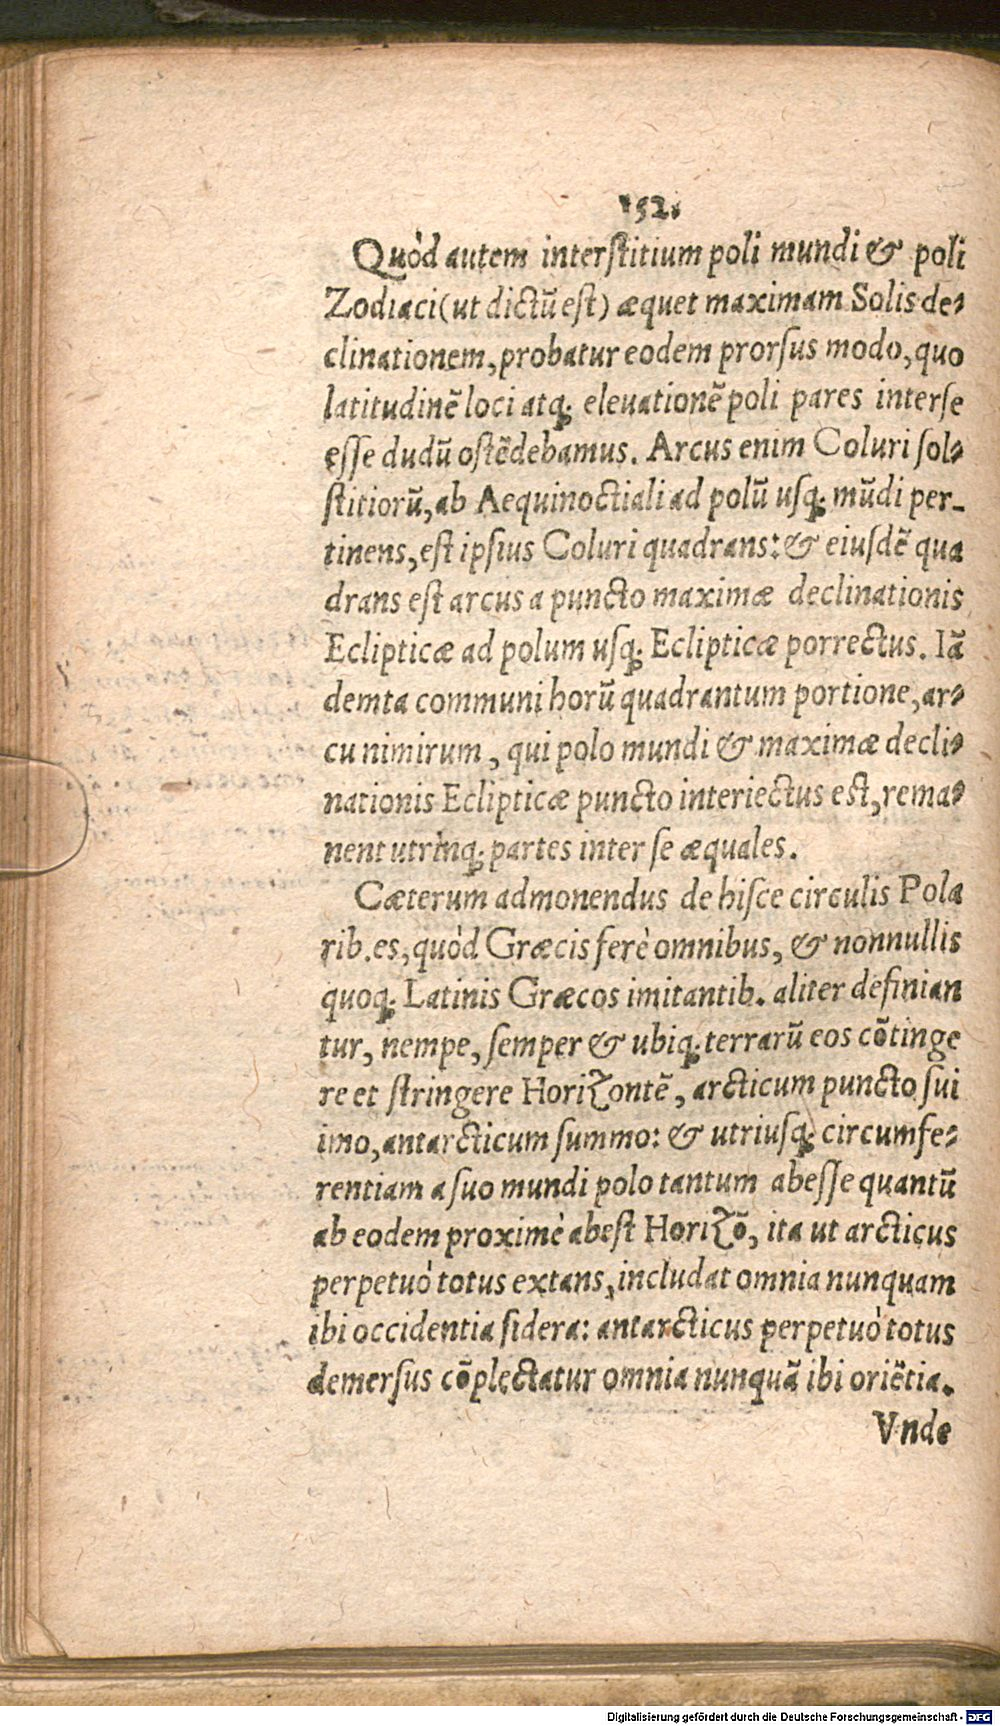 152.
Quòd autem interstitium poli mundi & poli
Zodiaci (ut dictũ est) æquet maximam Solis de-
clinationem, probatur eodem prorsus modo, quo
latitudinẽ loci atq; eleuationẽ poli pares interse
esse dudũ ostẽdebamus. Arcus enim Coluri sol-
stitiorũ, ab Aequinoctiali ad polũ usq; mũdi per-
tinens, est ipsius Coluri quadrans: & eiusdẽ qua
drans est arcus a puncto maximæ declinationis
Eclipticæ ad polum usq; Eclipticæ porrectus. Iã
demta communi horũ quadrantum portione, ar-
cu nimirum, qui polo mundi & maximæ decli-
nationis Eclipticæ puncto interiectus est, rema-
nent utrinq; partes inter se æquales.
Cæterum admonendus de hisce circulis Pola
rib. es, quòd Græcis ferè omnibus, & nonnullis
quoq; Latinis Græcos imitantib. aliter definian
tur, nempe, semper & ubiq; terrarũ eos cõtinge
re et stringere Horizontẽ, arcticum puncto sui
imo, antarcticum summo: & utriusq; circumfe-
rentiam a suo mundi polo tantum abesse quantũ
ab eodem proximè abest Horizõ, ita ut arcticus
perpetuò totus extans, includat omnia nunquam
ibi occidentia sidera: antarcticus perpetuò totus
demersus cõplectatur omnia nunquã ibi oriẽtia.
Vnde
Digitalisierung gefördert durch die Deutsche Forschungsgemeinschaft - DFG